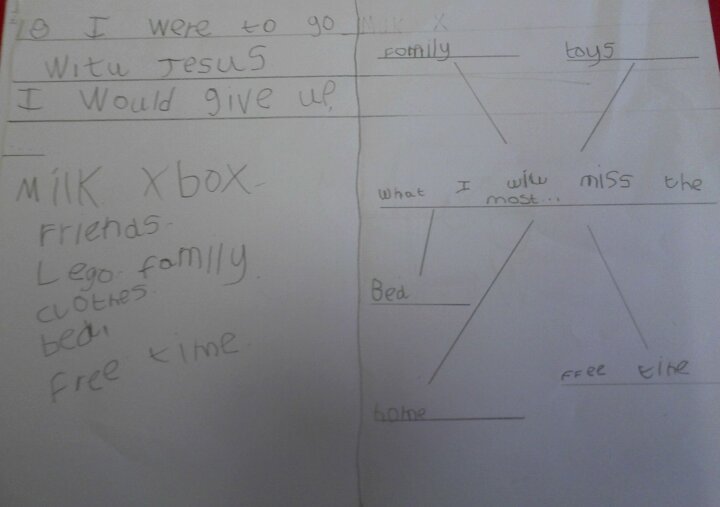 I were to go
With Jesus
I would give up
Milk Xbox
Friends
Lego family
clothes
bed
free time
Milk X
Family
toys
What I will miss the
most..
Bed
home
Free time